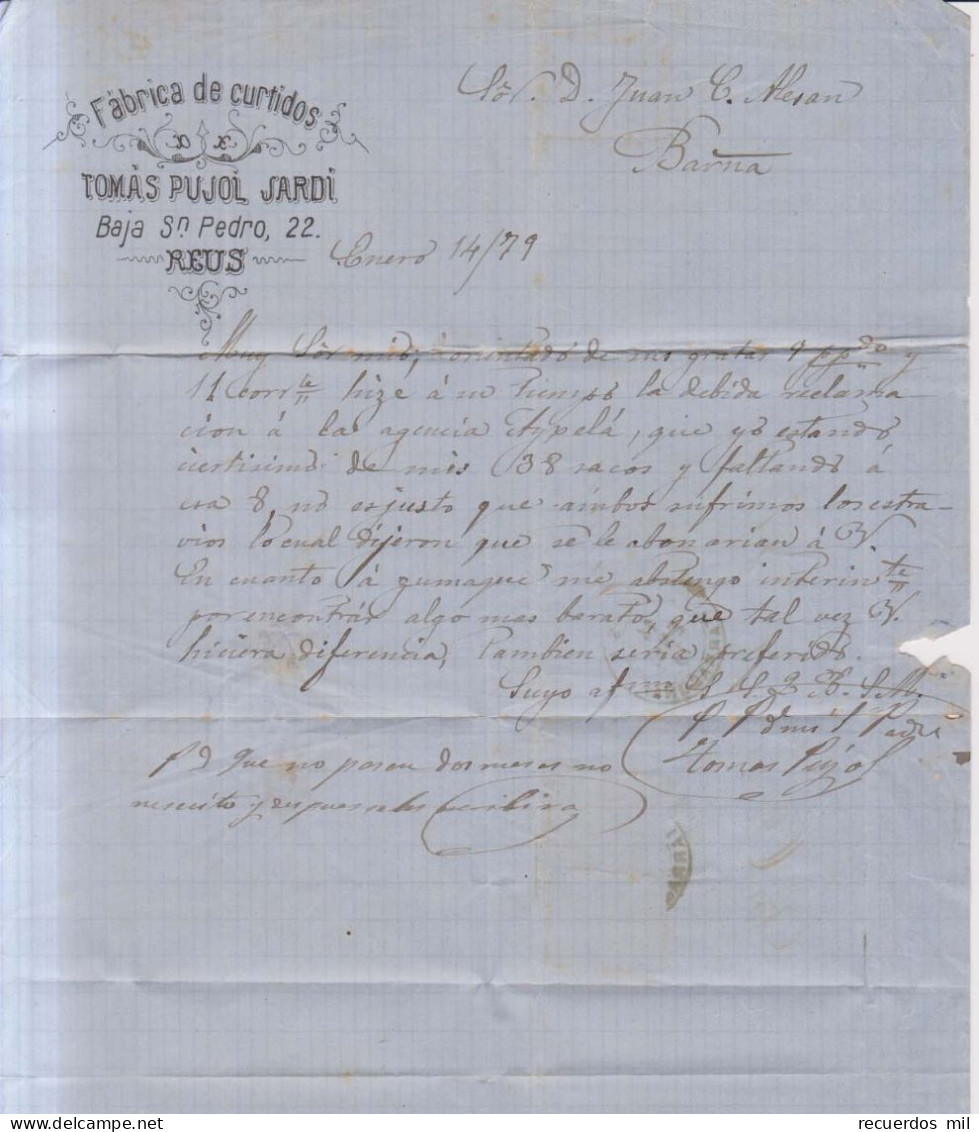 Fábrica de curtidos
DE
TOMÁS PUJOL SARDÍ
Baja Sn. Pedro, 22.
REUS
Sor. D. Juan C. Alesan
Barna
Enero 14/79
Muy Sor mio; de sus gratas 9 pp.do y
11 corrte hize á su tiempo la debida reclama
cion á la agencia que yo estando
ciertisimo de mis 38 sacos y faltando á
esa 8, no es justo que ambos sufrimos los estra-
vios lo cual dijeron que se le abonarian á V.
En cuanto á zumaque me abstengo interinte
por encontrar algo mas barato, que tal vez V.
hiciera diferencia, tambien seria preferido.
Suyo afmo S. S. q. B. S. M.
P. P. de mi S. Padre
Tomas Pujol
P d que no pasen dos meses no
necesito y
TARRA
recuerdos mil